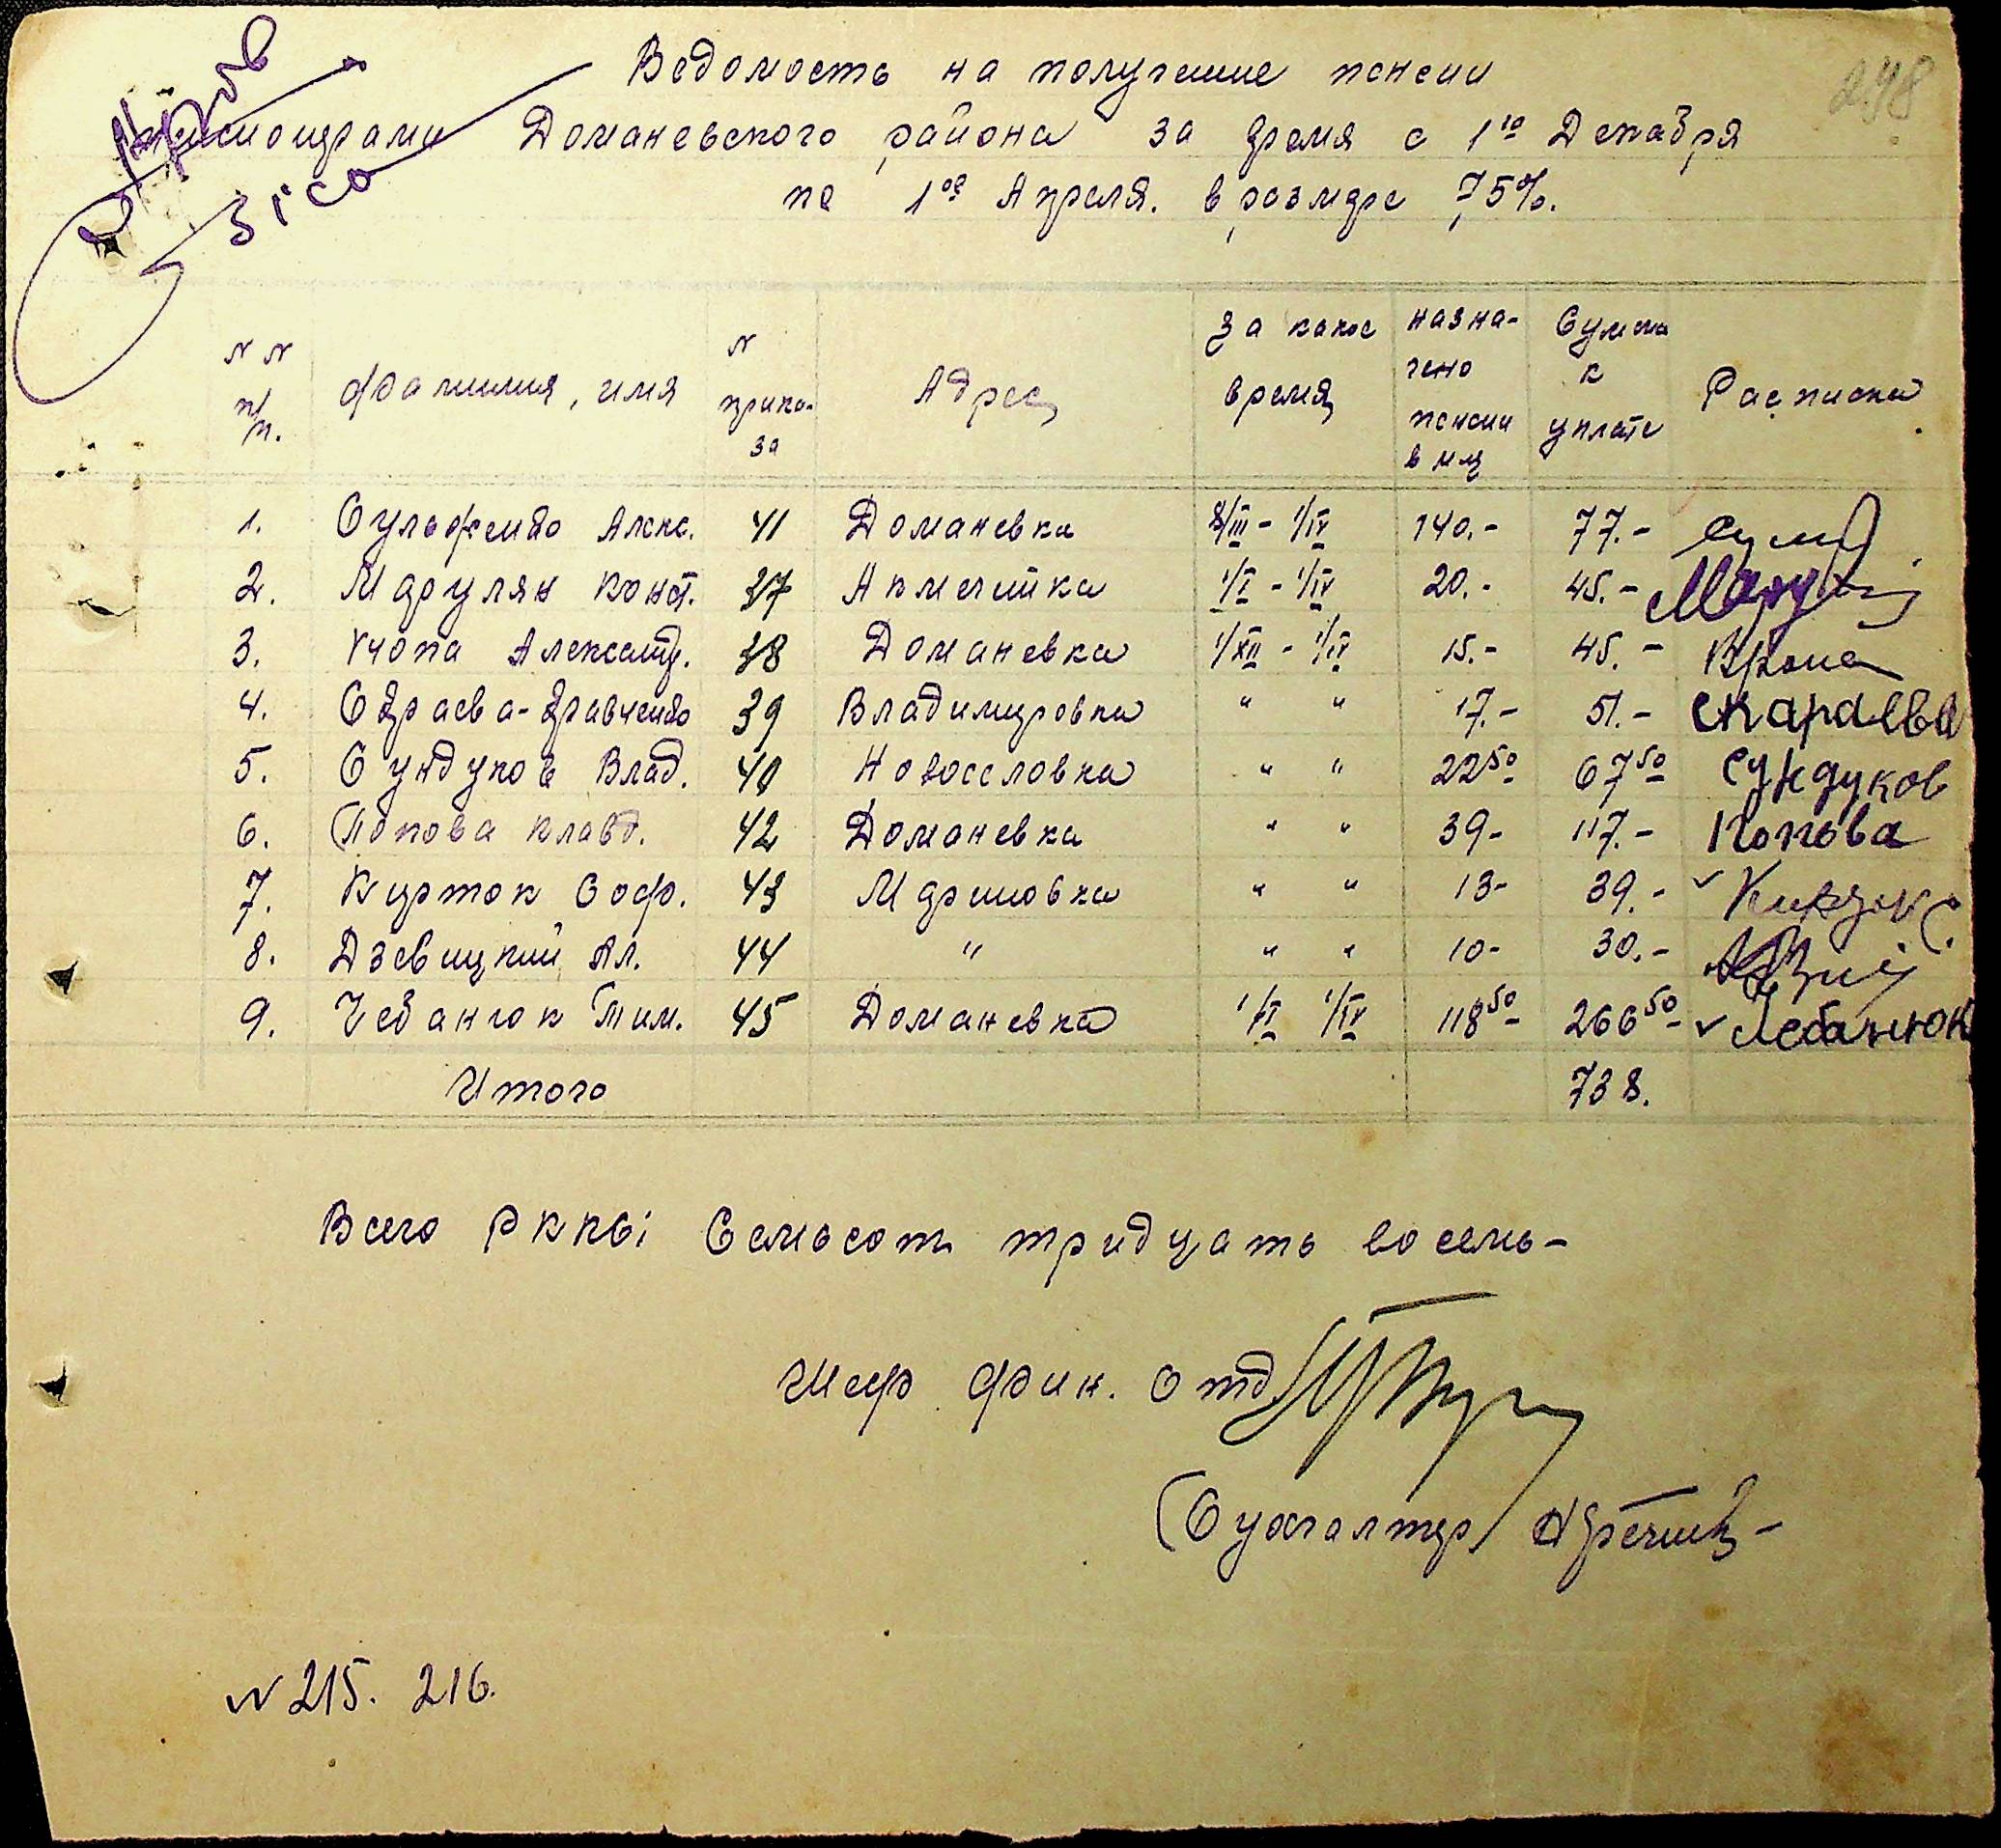 298
Ведомость на получение пенсии
пенсионерами Доманевского района за время с 1го Декабря
по 1ое Апреля. в размере 75%.
N N п/п. Фамилия, имя N приказа Адрес За какое время назначено пенсии в мц Сумма к уплате Расписка
1. Алекс. 41 Доманевка 8/III - 1/IV 140.- 77.-
2. Марулян Конст. 37 Акмечитка 1/I - 1/IV 20.- 45.-
3. Александ. 38 Доманевка 1/XII - 1/IV 15.- 45.-
4. 39 Владимировка " " 17.- 51.- Скараева
5. Сундуков Влад. 40 Новоселовка " " 22 50 67 50 Сундуков
6. Попова Клавд. 42 Доманевка " " 39- 117.- Попова
7. Курток Соф. 43 Мариновка " " 13- 39.-
8. Дзевицкий Ал. 44 " " " 10- 30.-
9. Чебанюк Тим. 45 Доманевка 1/I 1/IV 118 50 266 50 Чебанюк
Итого 738.
Всего РККС: Семьсот тридцать восемь-
Шеф фин. Отд.
Бухгалтер
N 215. 216.